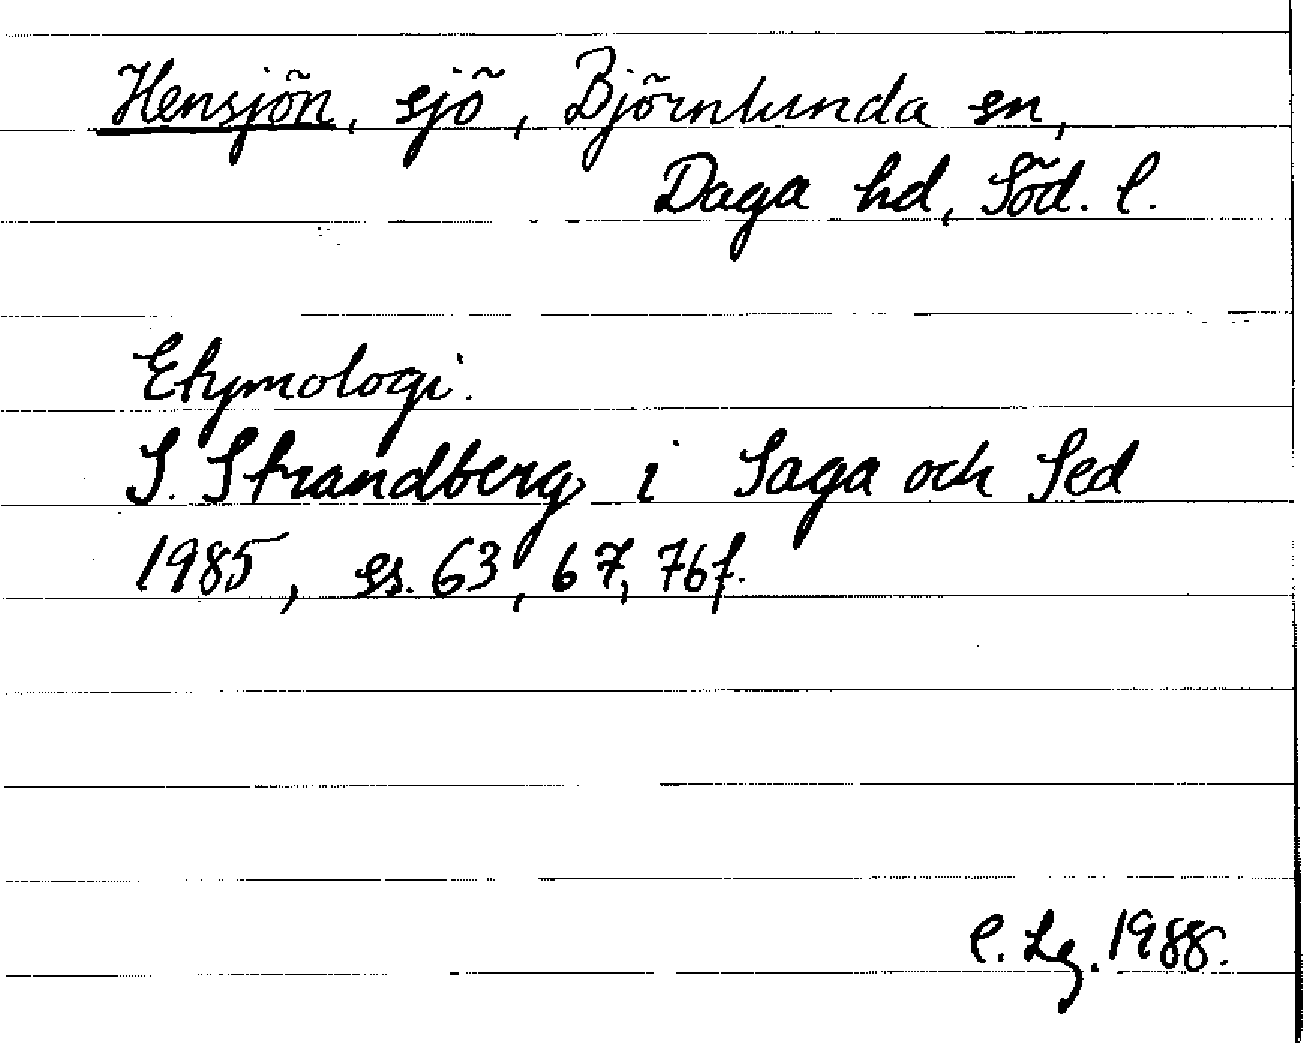 Hensjön, sjö, Björnlunda sn,
Daga hd, Söd. l.
Etymologi.
S. Strandberg i Saga och Sed
1985, ss. 63, 67, 76f.
C. Lg. 1988.